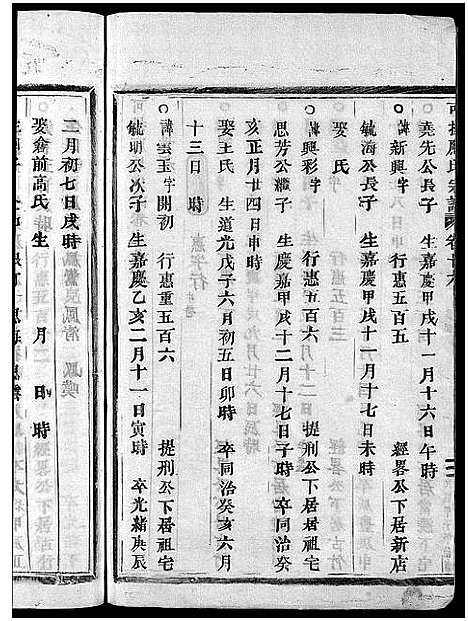 堯先公長子　生嘉慶甲戌十一月十六日午時
諱新興字　行惠五百五　經畧公下居新店
毓海公長子　生嘉慶甲戌十一月十七日未時
娶　氏
諱興彩字　行惠五百六　提刑公下居祖宅
思芳公繼子　生嘉慶甲戌十二月十七日子時　卒同治癸
亥正月廿四日申時
娶王氏　生道光戊子六月初五日卯時　卒同治癸亥六月
十三日　時
諱雲玉字開初　行惠重五百六　提刑公下居祖宅
毓明公次子　生嘉慶乙亥二月十一日寅時　卒光緒庚辰
二月初七日戌時
娶俞前高氏　生　月　日　時